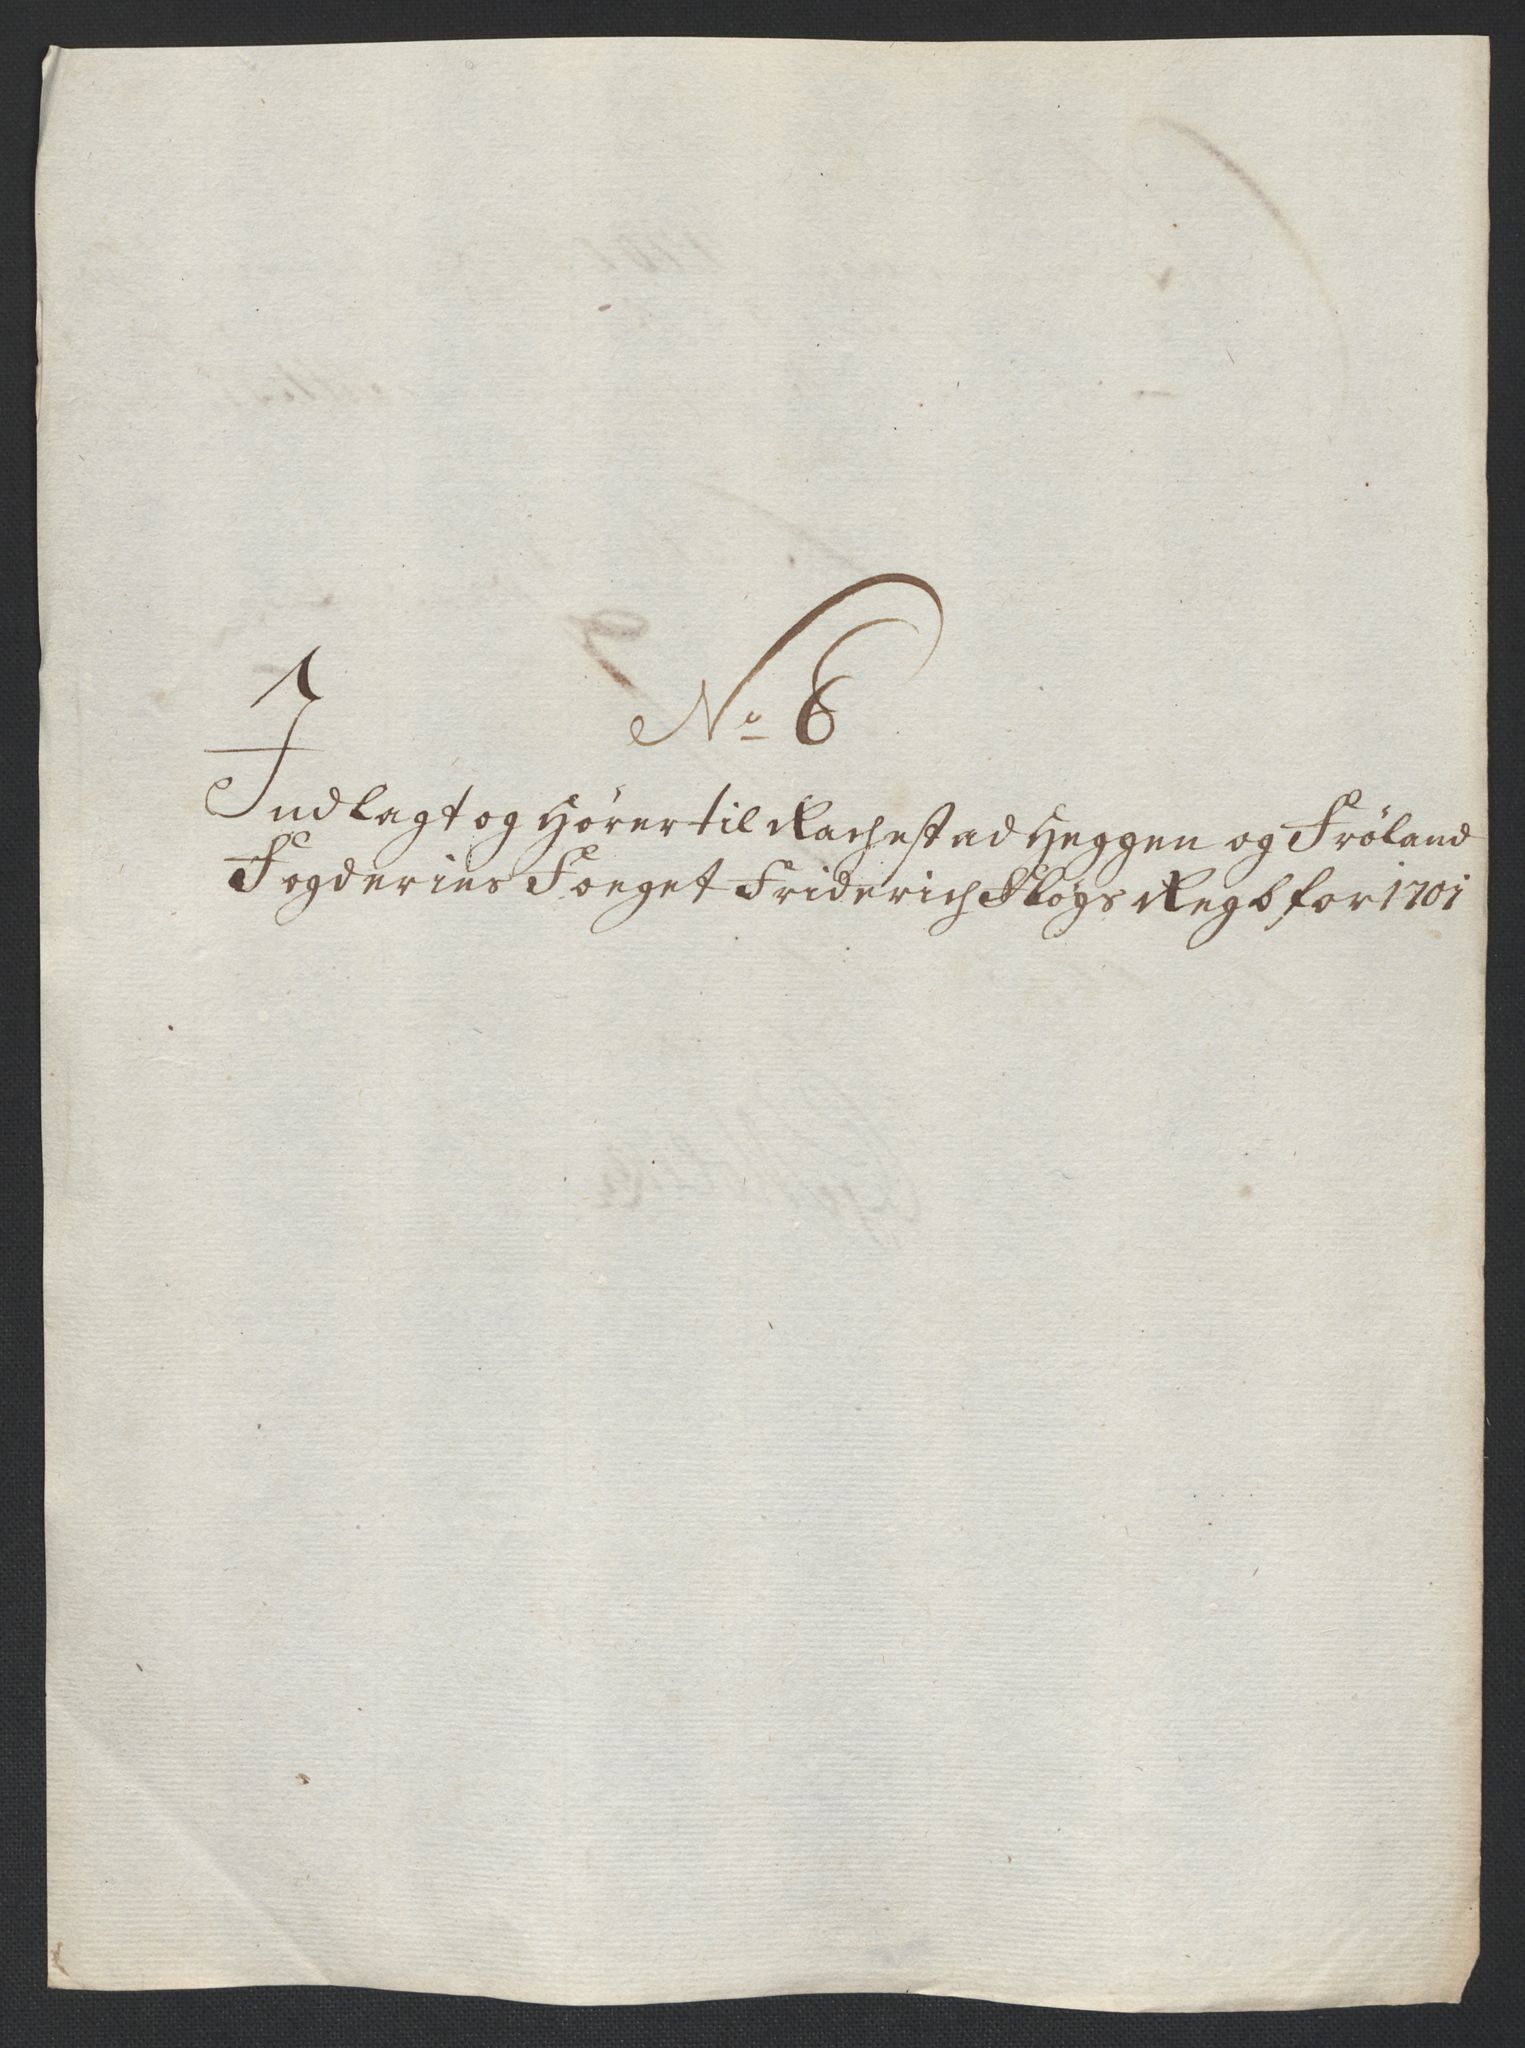 No 6
Indlagt og Hører til Rachestad Heggen og Frøland
Fogderies Foeget Friderich Pløgs Regb for 1701